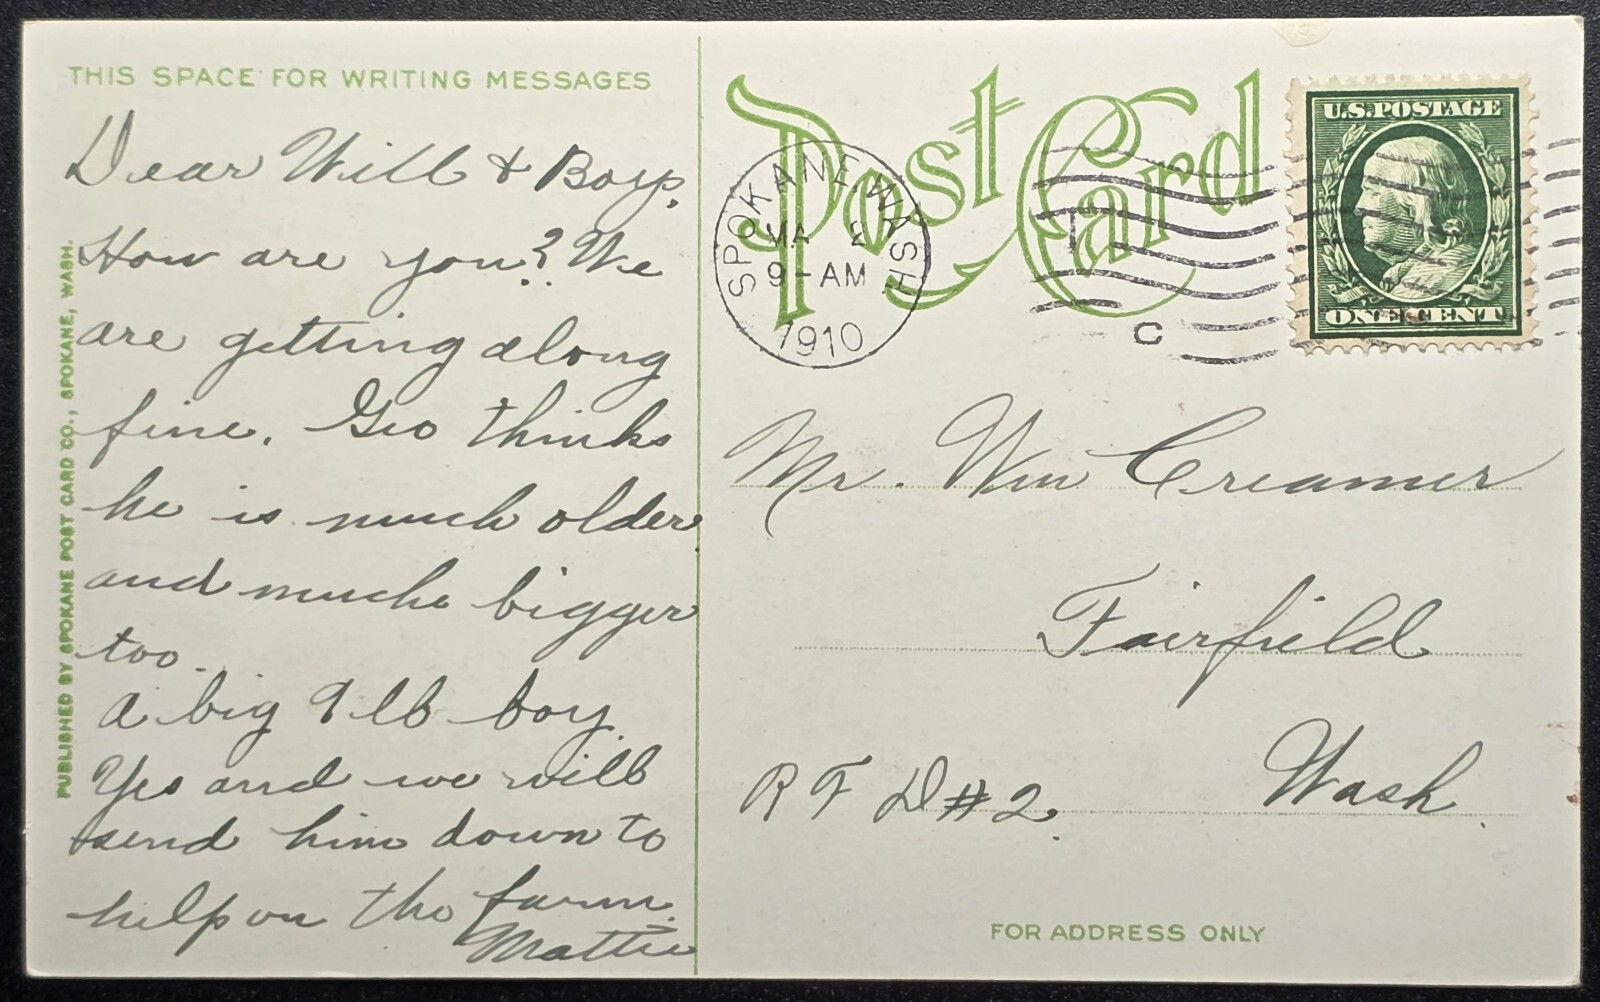 THIS SPACE FOR WRITING MESSAGES
Dear Will & Boys.
How are you? We
are getting along
fine. Geo thinks
he is much older
and much bigger
too.
A big 9 lb boy.
Yes and we will
send him down to
help on the farm.
Mattie
PUBLISHED BY SPOKANE POST CARD CO., SPOKANE, WASH.
Post Card
SPOKANE WASH.
9-AM
1910
C
U.S.POSTAGE
ONE CENT
Mr. Wm Creamer
Fairfield
Wash.
R F D #2.
FOR ADDRESS ONLY